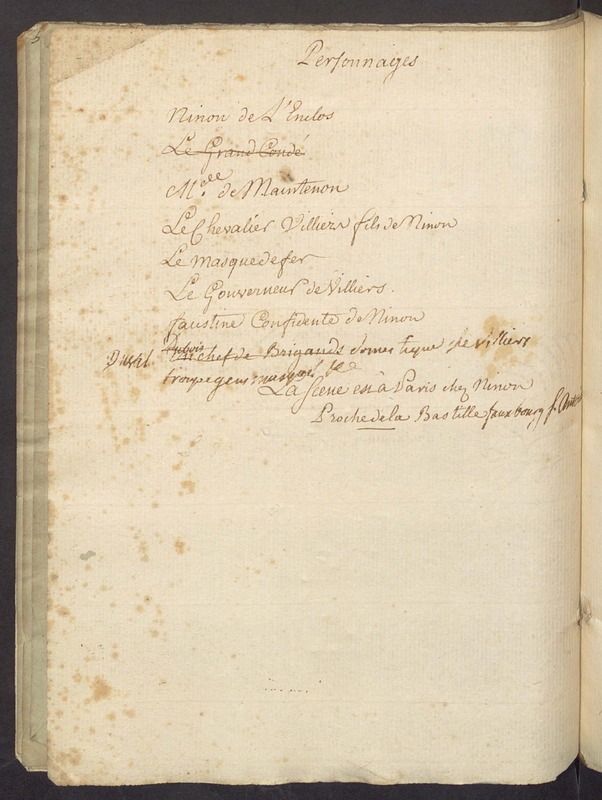 5
Personnages
Ninon de L'Enclos
Le Grand Condé
M.elle de Maintenon
Le Chevalier Villiers fils de Ninon
Le masque de fer
Le Gouverneur de Villiers.
faustine Confidente de Ninon
Dubois
chef de Brigands domestique de villiers
troupe gens masqués
La Scene est à Paris chez Ninon
Proche de la Bastille fauxbourg